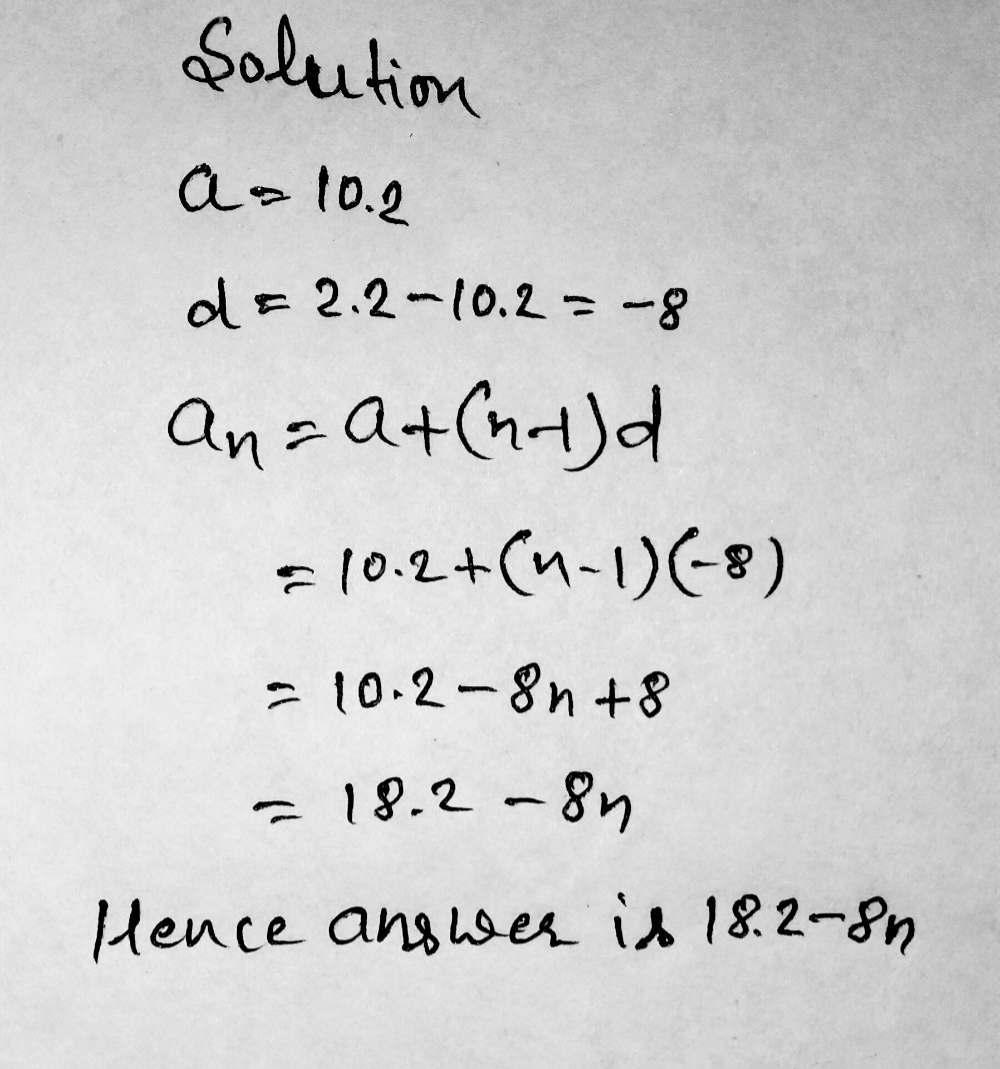 Solution
a = 10.2
d = 2.2-10.2 = -8
an = a+(n-1)d
= 10.2+(n-1)(-8)
= 10.2-8n+8
= 18.2-8n
Hence answer is 18.2-8n